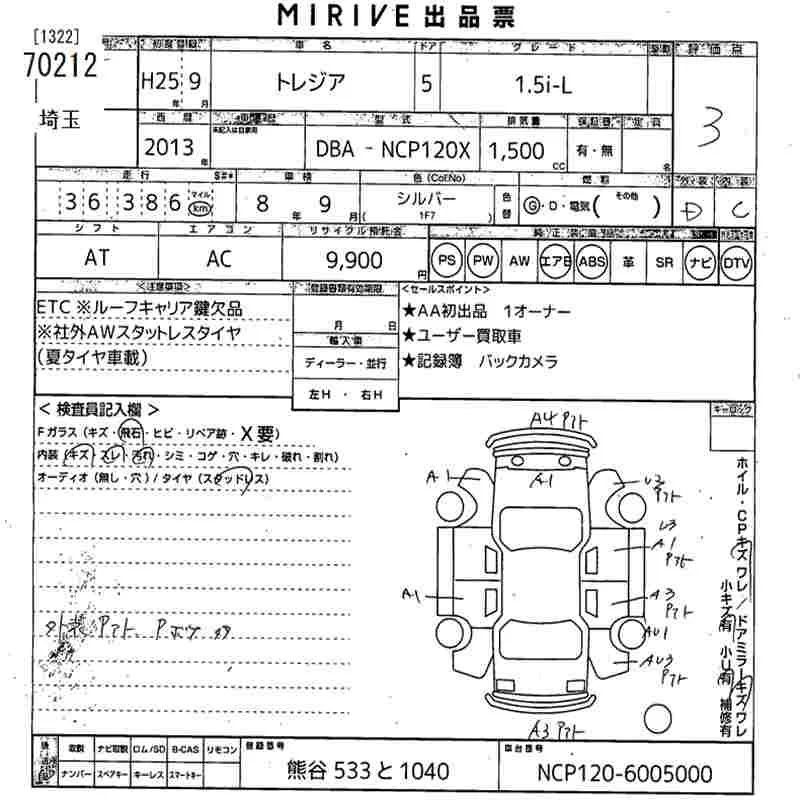 MIRIVE 出品票
[1322]
70212
埼玉
初度登録 車名 ドア グレード 評価点
H25 9 トレジア 5 1.5i-L
年 月
3
西暦 型式 排気量 保証書 定員
未記入は自家用
2013年 DBA - NCP120X 1,500 cc 有・無 名
走行 車検 色(ColNo) 燃料 外装 内装
36386 マイル km 8年 9月 シルバー ( 1F7 ) 色替 G・D・電気( その他 ) D C
シフト エアコン リサイクル預託金
AT AC 9,900円 PS PW AW エアB ABS 革 SR ナビ DTV
<注意事項> 登録書類有効期限 <セールスポイント>
ETC ※ルーフキャリア鍵欠品
※社外AWスタットレスタイヤ
(夏タイヤ車載)
月 日
輸入車
ディーラー・並行
左H ・ 右H
★AA初出品 1オーナー
★ユーザー買取車
★記録簿 バックカメラ
< 検査員記入欄 >
Fガラス (キズ・飛石・ヒビ・リペア跡・X要)
内装 (キズ・スレ・汚れ・シミ・コゲ・穴・キレ・破れ・割れ)
オーディオ (無し・穴) / タイヤ (スタッドレス)
キャロック
A4 アト
A1
A1
U3 アト
U3
A1
アト
A1
A3
アト
AU1
AU3
アト
A3 アト
外装 アト Pボツ
ホイル・CPキズ ワレ/ドアミラーキズ/ワレ
小キズ有 小U有 補修有
取説 ナビ取説 ロム/SD B-CAS リモコン 登録番号 車台番号
ナンバー スペアキー キーレス スマートキー 熊谷 533 と 1040 NCP120-6005000